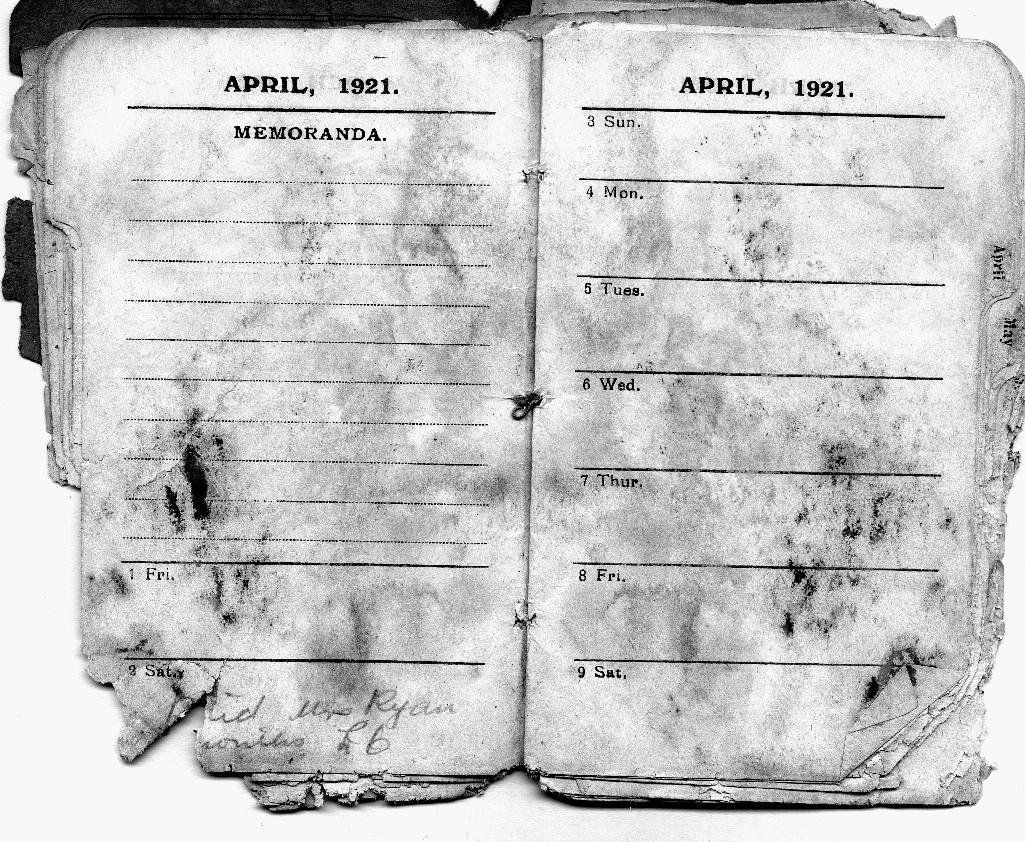 APRIL, 1921.
MEMORANDA.
1 Fri.
2 Sat.
Paid Mr Ryan
months £6
APRIL, 1921.
3 Sun.
4 Mon.
5 Tues.
6 Wed.
7 Thur.
8 Fri.
9 Sat.
April
May